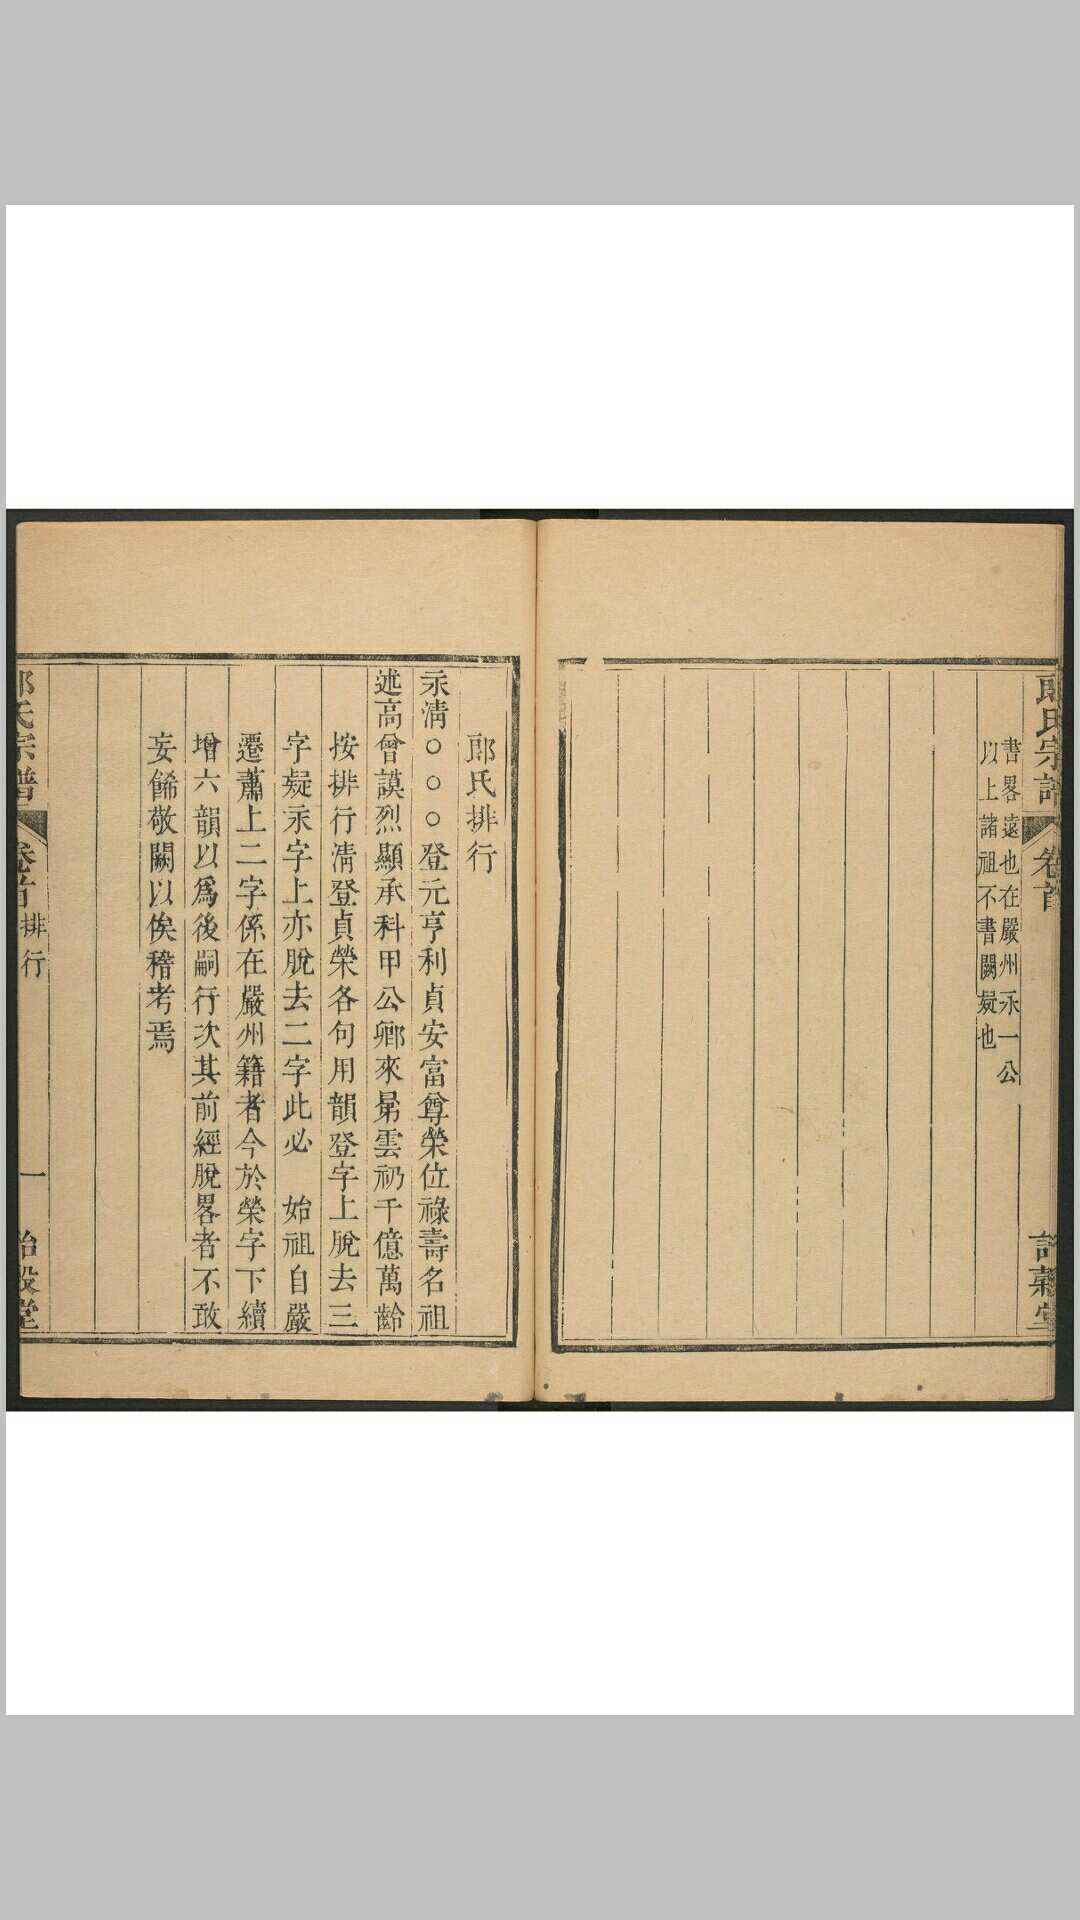 郎氏宗譜 卷首 詒穀堂
書畧遠也在嚴州永一公
以上諸祖不書闕疑也
郎氏排行
永清○○○登元亨利貞安富尊榮位祿壽名祖
述高曾謨烈顯承科甲公卿來晜雲礽千億萬齡
按排行清登貞榮各句用韻登字上脫去三
字疑永字上亦脫去二字此必 始祖自嚴
遷蕭上二字係在嚴州籍者今於榮字下續
增六韻以爲後嗣行次其前經脫畧者不敢
妄餙敬闕以俟稽考焉
郎氏宗譜 卷首 排行 一 詒穀堂